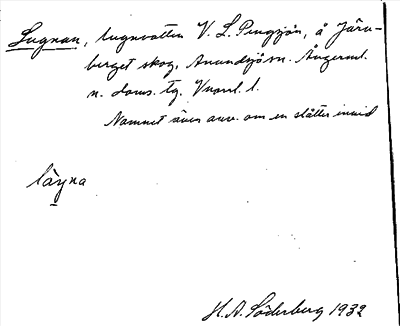 Lugnan, lugnvatten V. L. Pengsjön, å Järn-
berget skog, Anundsjö sn. Ångerml.
n. doms. tg. Vnorrl. l.
Namnet även anv. om en slåtter invid
H.A. Söderberg 1932